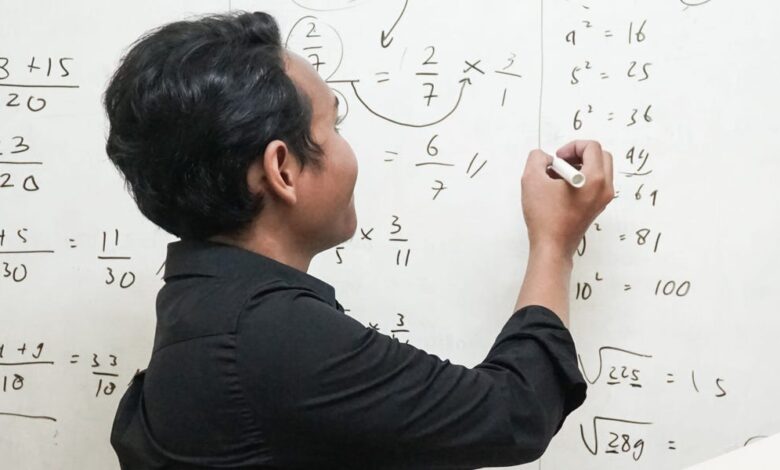 3 + 15
20
3
20
+ 5
30
=
11
30
+ 9
10
=
33
10
2
7
=
2
7
×
3
1
=
6
7
5
×
3
11
×
3
4² = 16
5² = 25
6² = 36
49
= 64
² = 81
10² = 100
√225 = 15
√289 =